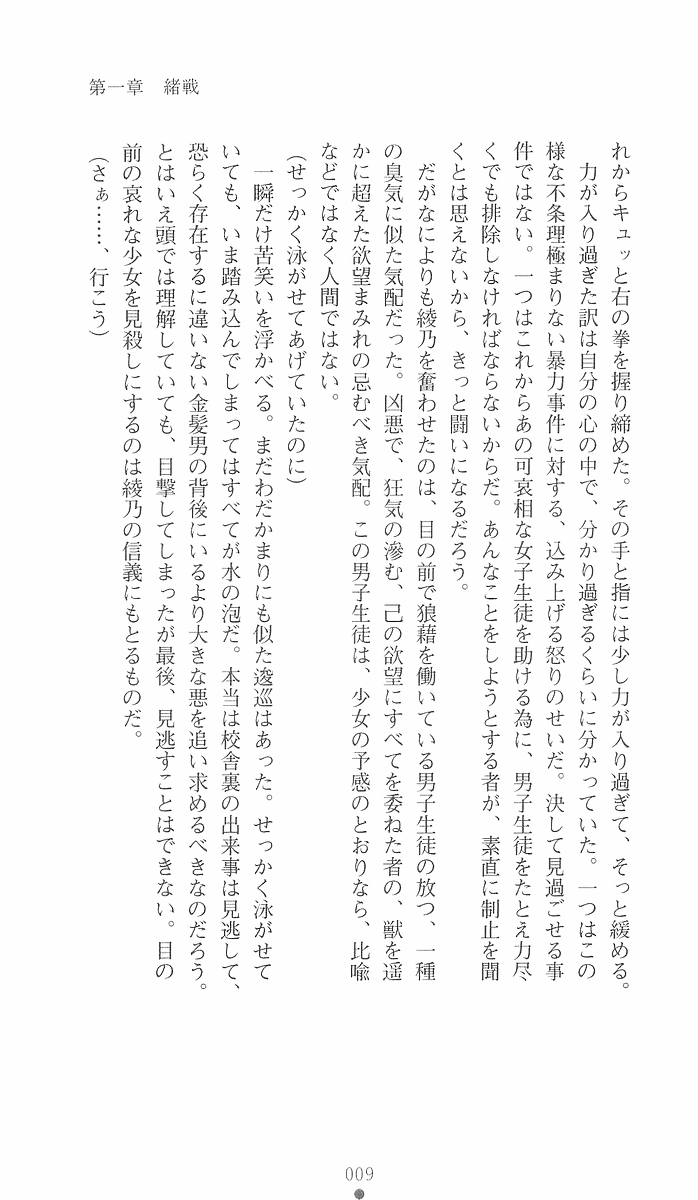 第一章　緒戦
れからキュッと右の拳を握り締めた。その手と指には少し力が入り過ぎて、そっと緩める。
　力が入り過ぎた訳は自分の心の中で、分かり過ぎるくらいに分かっていた。一つはこの
様な不条理極まりない暴力事件に対する、込み上げる怒りのせいだ。決して見過ごせる事
件ではない。一つはこれからあの可哀相な女子生徒を助ける為に、男子生徒をたとえ力尽
くでも排除しなければならないからだ。あんなことをしようとする者が、素直に制止を聞
くとは思えないから、きっと闘いになるだろう。
　だがなによりも綾乃を奮わせたのは、目の前で狼藉を働いている男子生徒の放つ、一種
の臭気に似た気配だった。凶悪で、狂気の滲む、己の欲望にすべてを委ねた者の、獣を遥
かに超えた欲望まみれの忌むべき気配。この男子生徒は、少女の予感のとおりなら、比喩
などではなく人間ではない。
（せっかく泳がせてあげていたのに）
　一瞬だけ苦笑いを浮かべる。まだわだかまりにも似た逡巡はあった。せっかく泳がせて
いても、いま踏み込んでしまってはすべてが水の泡だ。本当は校舎裏の出来事は見逃して、
恐らく存在するに違いない金髪男の背後にいるより大きな悪を追い求めるべきなのだろう。
とはいえ頭では理解していても、目撃してしまったが最後、見逃すことはできない。目の
前の哀れな少女を見殺しにするのは綾乃の信義にもとるものだ。
（さぁ……、行こう）
009